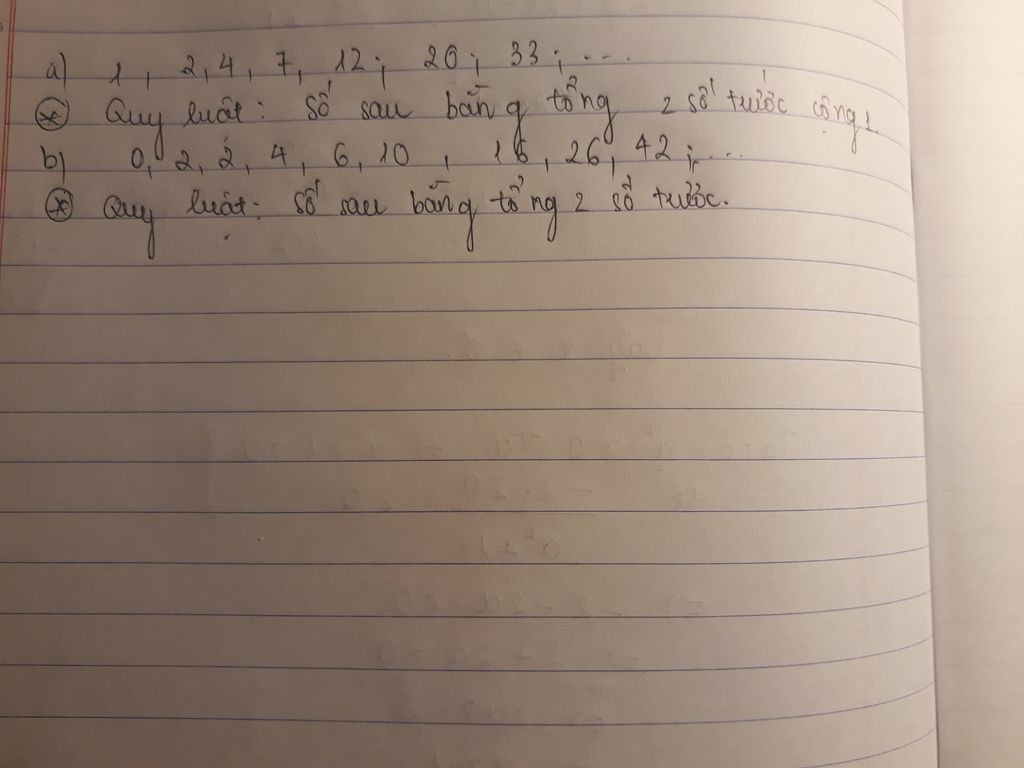 a) 1, 2, 4, 7, 12; 20; 33; ....
* Quy luật: Số sau bằng tổng 2 số trước cộng 1
b) 0, 2, 2, 4, 6, 10, 16, 26, 42; ...
* Quy luật: Số sau bằng tổng 2 số trước.